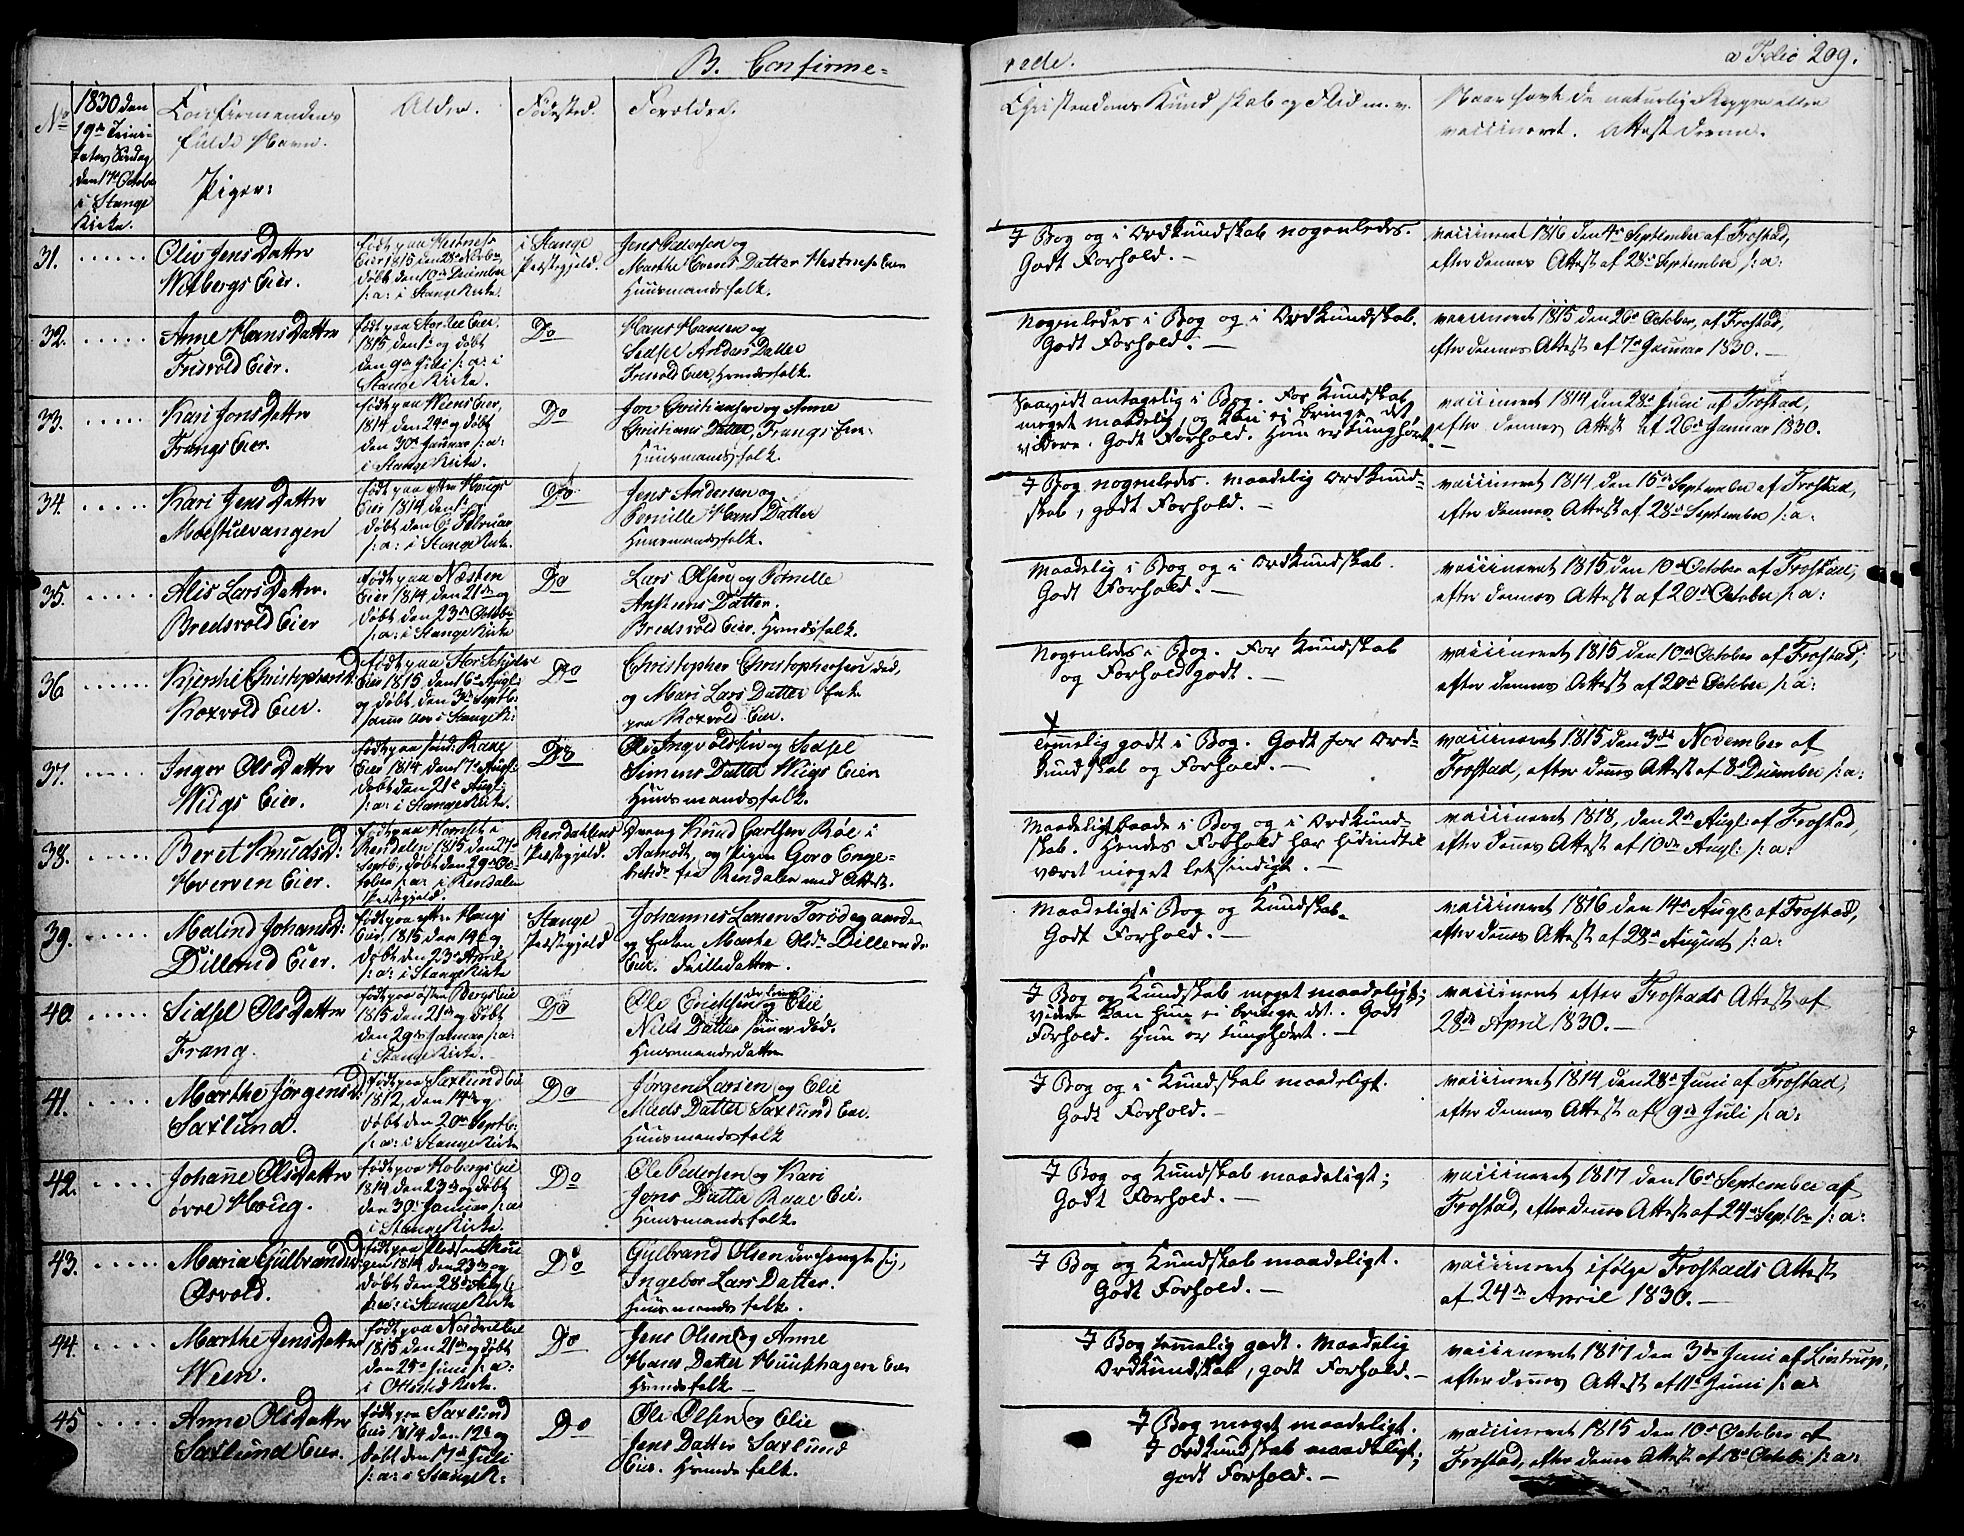 B. Confirme=
rede.
a Folio 209.
No
1830 den
19de Trini-
tatis Søndag
den 17de October
i Stange
Kirke.
Confirmandens
fulde Navn.
Piger:
Alder.
Fødested.
Forældre.
Christendoms Kundskab og Flid m. v.
Naar havt de naturlige Kopper eller
vaccineret. Attest derom.
31.
Oliv Jens Datter
Wilbergs Eier.
født paa Hestnes
Eier 1815 den 28de Novbr,
døbt den 10de December
/:a:/ i Stange Kirke.
i Stange
Præstegjeld.
Jens Pettersen og
Marthe Evens Datter Hestnes Eier
Huusmandsfolk.
I Bog og i Ordkundskab nogenledes.
Godt Forhold. -
vaccineret 1816 den 4de September af Frostad,
efter dennes Attest af 28de September /:a:
32.
Anne Hans Datter
Frisvold Eier.
1815, den 1ste og døbt
den 9de Juli /:a: i
Stange Kirke.
Do
Hans Hansen og
Sidsel Anders Datter
Frisvold Eier, Huusmdsfolk.
Nogenledes i Bog og i Ordkundskab.
Godt Forhold. -
vaccineret 1815 den 26de October, af Frostad,
efter dennes Attest af 7de Januar 1830. -
33.
Kari Jons Datter
Frangs Eier.
født paa Wiens Eier,
1814 den 24de og døbt
den 30de Januar /:a:
i Stange Kirke.
Do
Jon Christiansen og Anne
Christians Datter, Frangs Eier
Huusmandsfolk.
Saavidt antagelig i Bog. For Kundskab
meget maadelig, og kan ei bringe det
videre. Godt Forhold. Hun er tunghørt.
vaccineret 1814 den 28de Juni af Frostad,
efter dennes Attest af 26de Januar 1830.
34.
Kari Jens Datter
Moestuevangen
født paa ytre Hougs
Eier 1814, den 1ste
døbt den 6te Februar
/:a: i Stange Kirke.
Do
Jens Andersen og
Pernille Hans Datter
Huusmandsfolk.
I Bog nogenledes. Maadelig Ordkund=
skab, godt Forhold. -
vaccineret 1814, den 15de September af Frostad,
efter dennes Attest af 28de September /:a:
35.
Alis Lars Datter.
Bredsvold Eier
født paa Næsten
Eier 1814, den 21de og
døbt den 23de October
/:a: i Stange Kirke
Do
Lars Olsen og Pernelle
Datter.
Bredsvold Eier. Huusmdsfolk.
Maadelig i Bog og i Ordkundskab.
Godt Forhold. -
vaccineret 1815 den 10de October af Frostad,
efter dennes Attest af 20de October /:a:
36
Kjersti Christophersd
Roxvold Eier.
Eier 1815 den 16de Aug:
og døbt den 3die Septb:
samme Aar i Stange K:
Do
Christopher Christophersen død,
og Mari Lars Datter Enke
paa Roxvold Eier.
Nogenledes i Bog. For Kundskab
og Forhold godt. -
vaccineret 1815, den 10de October af Frostad,
efter dennes Attest af 20de October /:a:
37.
Inger Ols Datter
Wiigs Eier.
Eier 1814 den 17de Aug:
døbt den 21de Aug:
/:a: i Stange Kirke.
Do
Ole Ingvoldsen og Sidsel
Simens Datter Wiigs Eien
Huusmandsfolk.
Temmelig godt i Bog. Godt for Ord=
kundskab og Forhold. -
vaccineret 1815 den 3die November af
Frostad, efter dennes Attest af 8de December /:a:
38.
Beret Knudsd:
Hverven Eier.
Rendalen 1815 den 24de
Septb, døbt den 29de Oc
tober /:a: i Rendalen
Præstegjeld.
Rendahlens
Præstegjeld.
Dreng Knud Carlsen Røe i
Aamodt, og Pigen Goro Enge=
bretsdr fra Rendalen med Attest.
Maadeligt baade i Bog og i Ordkund
skab. Hendes Forhold har hidindtil
været meget letsindigt. -
vaccineret 1818, den 2de Aug: af Frostad,
efter dennes Attest af 10de Aug: /:a:
39.
Malind Johansd:
Dillerud Eier.
født paa ytre Hougs
Eier, 1815 den 14de og
døbt den 23de April
/:a: i Stange Kirke
Stange
Præstegjeld
Johannes Larsen Torødegaarden
og Enken Marthe Olsdr Dilleruds
Eier. Frille Datter.
Maadeligt i Bog og Kundskab.
Godt Forhold. -
vaccineret 1816 den 14de Aug: af Frostad,
efter dennes Attest af 28de August /:a:
40.
Sidsel Ols Datter
Frang.
født paa østen Bergs Eie
1815 den 21de og døbt
den 29de Januar /:a:
i Stange Kirke. -
Do
Ole Ericksen og Elie
Niels Datter som er død.
Huusmandsdatter
I Bog og Kundskab meget maadeligt;
videre kan hun ei bringe det. Godt
Forhold. Hun er tunghørt. -
vaccineret efter Frostads Attest af
28de April 1830. -
41.
Marthe Jørgensd:
Saxlund.
født paa Saxlund Eie
1812, den 14de og
døbt den 20de Septb:
/:a: i Stange Kirke
Do
Jørgen Larsen og Elie
Mads Datter Saxlund Eier.
Huusmandsfolk
I Bog og i Kundskab maadeligt.
Godt Forhold. -
vaccineret 1814, den 28de Juni af Frostad,
efter dennes Attest af 9de Juli /:a:
42.
Johane Ols Datter
øvre Houg.
født paa Hobergs Eie
1814 den 23de og døbt
den 30de Januar /:a
i Stange Kirke.
Do
Ole Pedersen og Kari
Jons Datter Raae Eie.
Huusmandsfolk
I Bog og Kundskab maadeligt;
Godt Forhold. -
vaccineret 1817 den 16de September af
Frostad, efter dennes Attest af 24de Septbr /:a:
43.
Maria Gulbrandsd
Osvold.
gen 1814 den 23de og
døbt den 28de
i Stange Kirke
Do
Gulbrand Olsen der hengte sig,
Ingebor Lars Datter.
Huusmandsfolk.
I Bog og Kundskab maadeligt.
Godt Forhold. -
vaccineret ifølge Frostads Attest
af 24de April 1830. -
44.
Marthe Jens Datter
Ween.
født paa Nordvi Eie
1815 den 21de og døbt
den 25de Juni /:a:
i Ottestad Kirke.
Do
Jens Olsen og Anne
Hans Datter Huushagen Eier
Huusmdsfolk -
I Bog temmelig godt. Maadelig
Ordkundskab, godt Forhold. -
vaccineret 1817 den 3die Juni af Lintrup,
efter dennes Attest af 11te Juni /:a:
45
Anne Ols Datter
Saxlund Eier.
født paa Saxlund
Eier 1814, den 12te og
døbt den 17de Juli
/:a: i Stange K:
Do
Ole Olsen og Elie
Jens Datter Saxlund
Eier. Huusmdsfolk.
I Bog meget maadeligt.
I Ordkundskab maadeligt;
godt Forhold. -
vaccineret 1815 den 10de October af
Frostad, efter dennes Attest af 18de Octobr /:a: